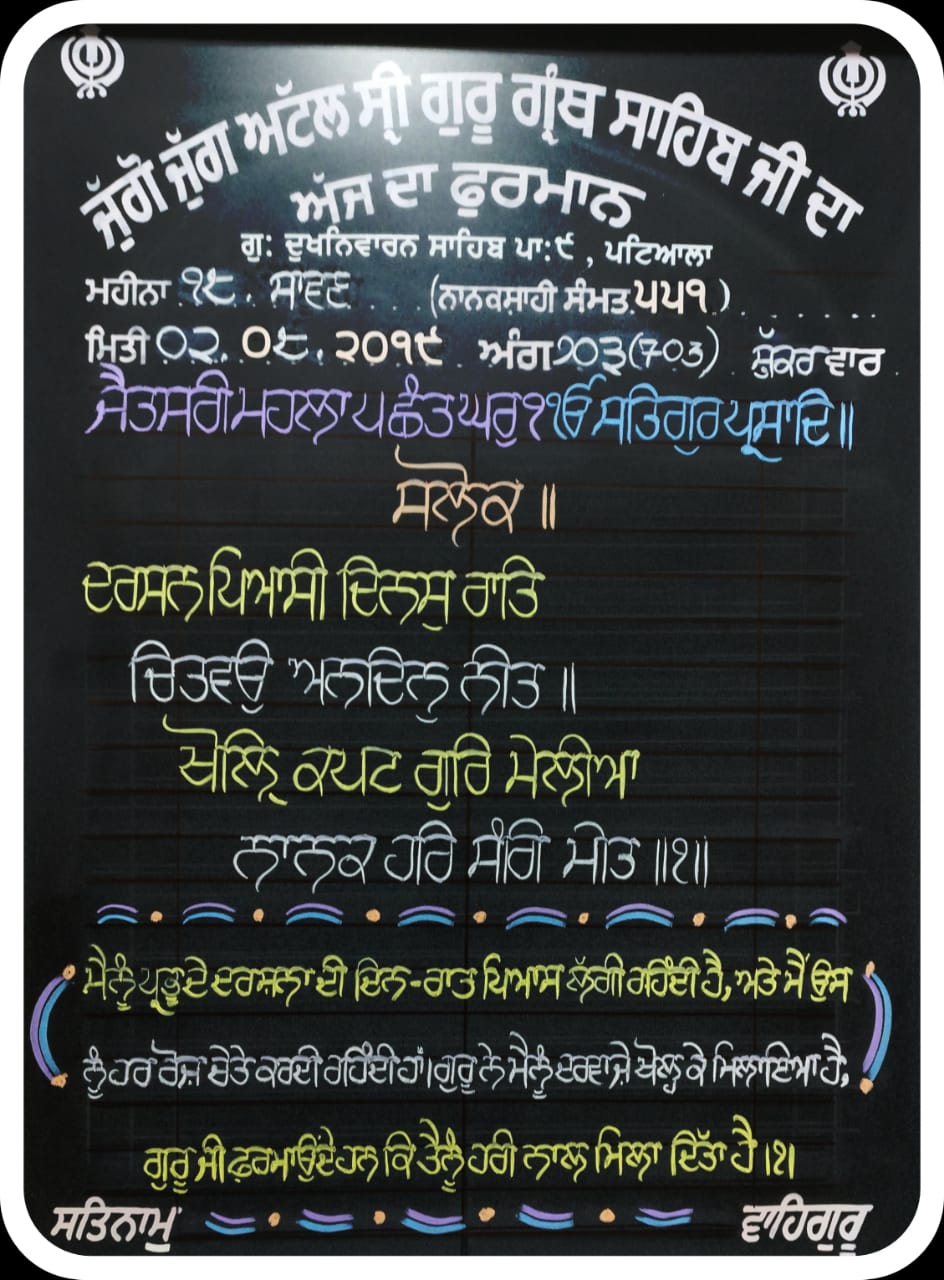 ਜੁੱਗੋ ਜੁੱਗ ਅੱਟਲ ਸ੍ਰੀ ਗੁਰੂ ਗ੍ਰੰਥ ਸਾਹਿਬ ਜੀ ਦਾ
ਅੱਜ ਦਾ ਫੁਰਮਾਨ
ਗੁ: ਦੁਖਨਿਵਾਰਨ ਸਾਹਿਬ ਪਾ:੯ , ਪਟਿਆਲਾ
ਮਹੀਨਾ ੧੮ . ਸਾਵਣ . . . (ਨਾਨਕਸ਼ਾਹੀ ਸੰਮਤ.੫੫੧ )
ਮਿਤੀ ੦੨. ੦੮. ੨੦੧੯ . ਅੰਗ ੭੦੩(703) ਸ਼ੁੱਕਰ ਵਾਰ
ਜੈਤਸਰੀ ਮਹਲਾ ੫ ਛੰਤ ਘਰੁ ੧ ੴ ਸਤਿਗੁਰ ਪ੍ਰਸਾਦਿ॥
ਸਲੋਕ ॥
ਦਰਸਨ ਪਿਆਸੀ ਦਿਨਸੁ ਰਾਤਿ
ਚਿਤਵਉ ਅਨਦਿਨੁ ਨੀਤ ॥
ਖੋਲਿ੍ ਕਪਟ ਗੁਰਿ ਮੇਲੀਆ
ਨਾਨਕ ਹਰਿ ਸੰਗਿ ਮੀਤ ॥੧॥
ਮੈਨੂੰ ਪ੍ਰਭੂ ਦੇ ਦਰਸ਼ਨਾ ਦੀ ਦਿਨ-ਰਾਤ ਪਿਆਸ ਲੱਗੀ ਰਹਿੰਦੀ ਹੈ, ਅਤੇ ਮੈਂ ਉਸ
ਨੂੰ ਹਰ ਰੋਜ਼ ਚੇਤੇ ਕਰਦੀ ਰਹਿੰਦੀ ਹਾਂ। ਗੁਰੂ ਨੇ ਮੈਨੂੰ ਦਰਵਾਜ਼ੇ ਖੋਲ੍ਹ ਕੇ ਮਿਲਾਇਆ ਹੈ,
ਗੁਰੂ ਜੀ ਫ਼ਰਮਾਉਂਦੇ ਹਨ ਕਿ ਤੈਨੂੰ ਹਰੀ ਨਾਲ ਮਿਲਾ ਦਿੱਤਾ ਹੈ ।੧।
ਸਤਿਨਾਮੁ ਵਾਹਿਗੁਰੂ